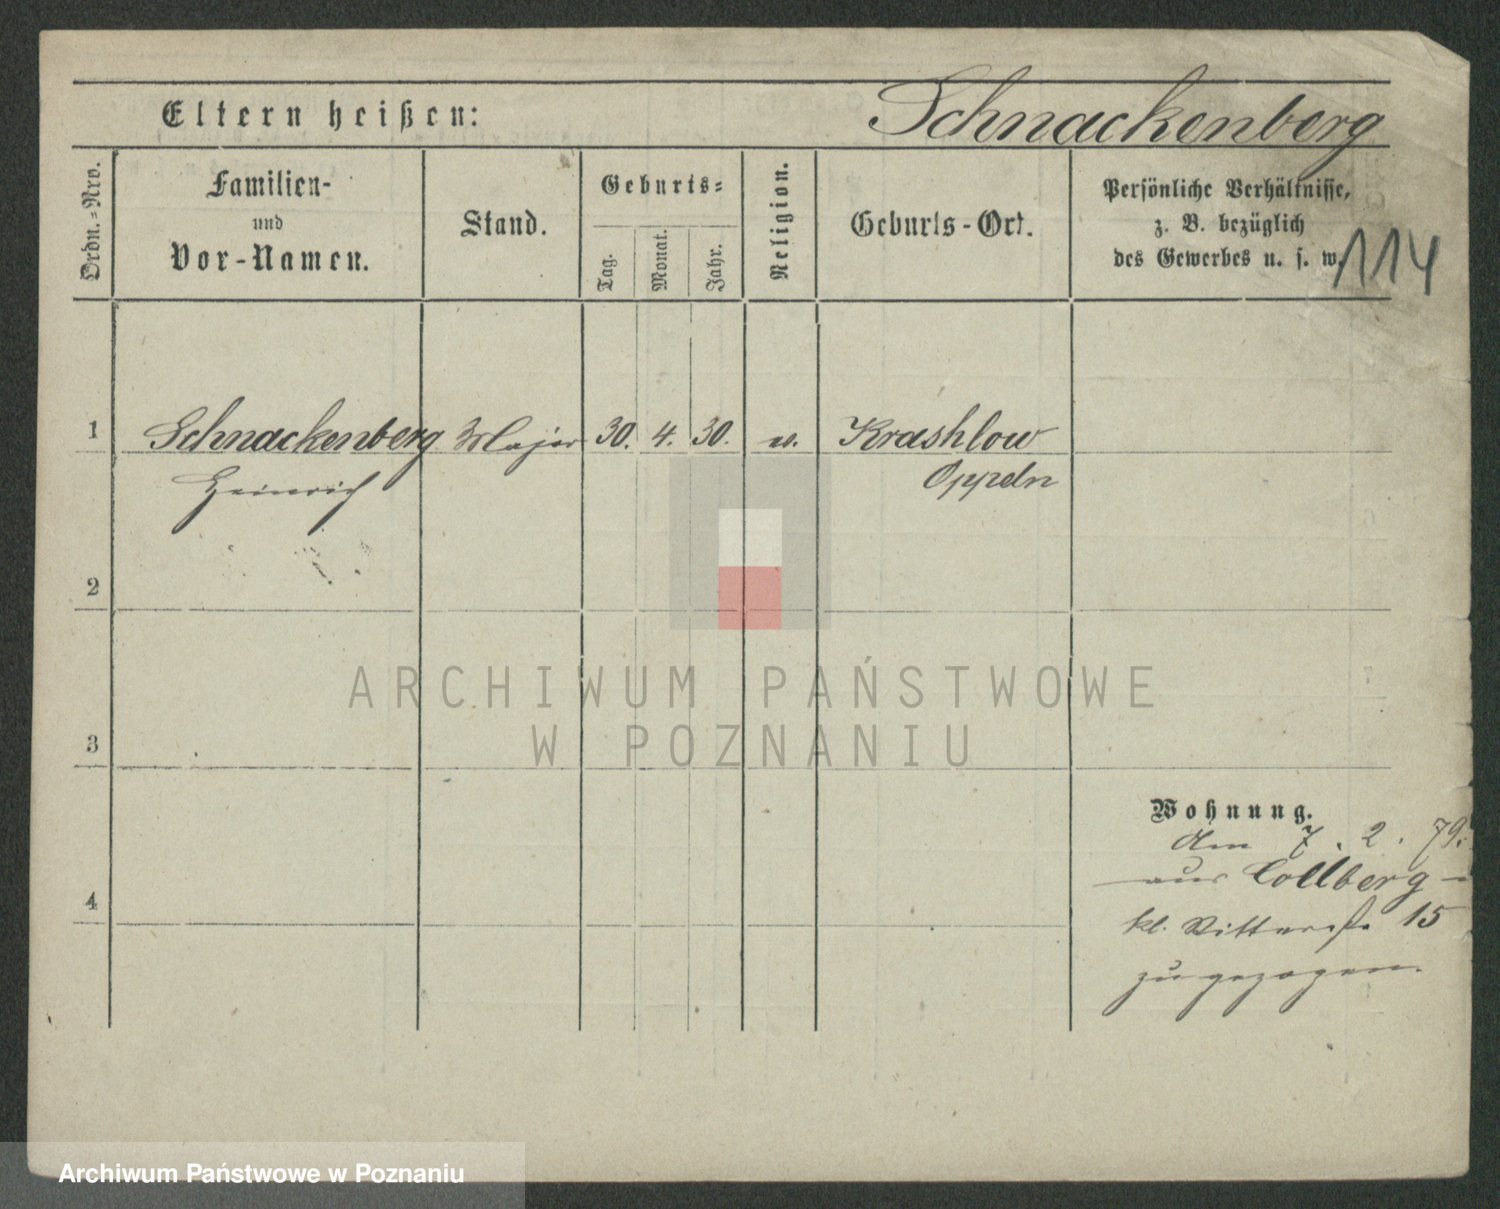 Eltern heißen:
Schnackenberg
Ordn.=Nro.
Familien-
und
Vor-Namen.
Stand.
Geburts=
Tag.
Monat.
Jahr.
Religion.
Geburts-Ort.
Persönliche Verhältnisse,
z. B. bezüglich
des Gewerbes u. s. w.
114
1
Schnackenberg Major 30. 4. 30. Krashlow
Heinrich Oppeln
2
3
4
Wohnung.
Am 7. 2. 79.
aus Collberg
kl. Ritterstr 15
zugezogen.
ARCHIWUM PAŃSTWOWE
W POZNANIU
Archiwum Państwowe w Poznaniu